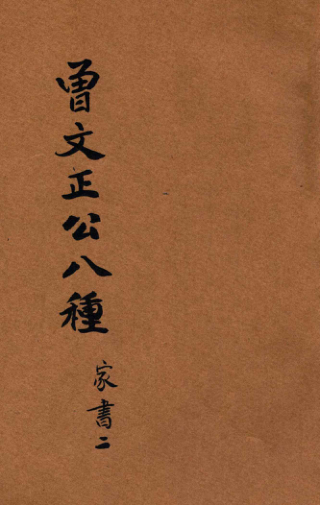 曾文正公八種
家書二